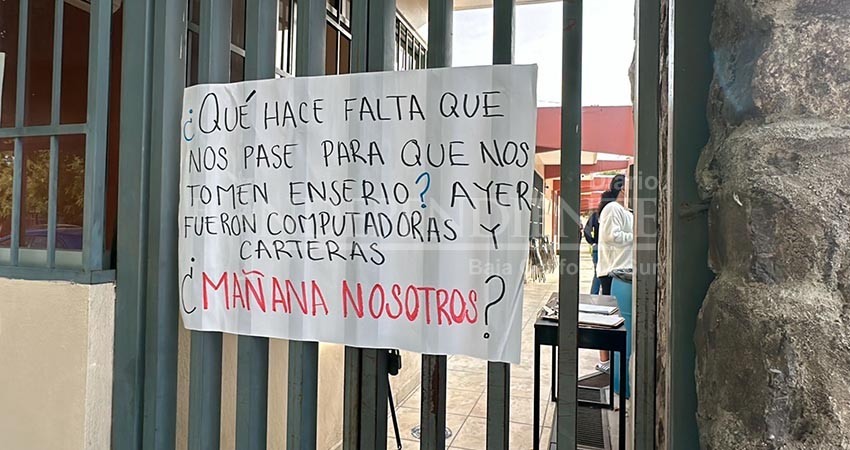 ¿QUÉ HACE FALTA QUE
NOS PASE PARA QUE NOS
TOMEN ENSERIO? AYER
FUERON COMPUTADORAS Y
CARTERAS
¿MAÑANA NOSOTROS?
Diario
Baja